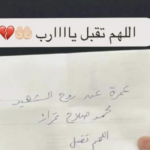 اللهم تقبل ياااارب 🤲🏻💔
عمرة عن روح الشهيد
محمد صلاح
اللهم تقبل